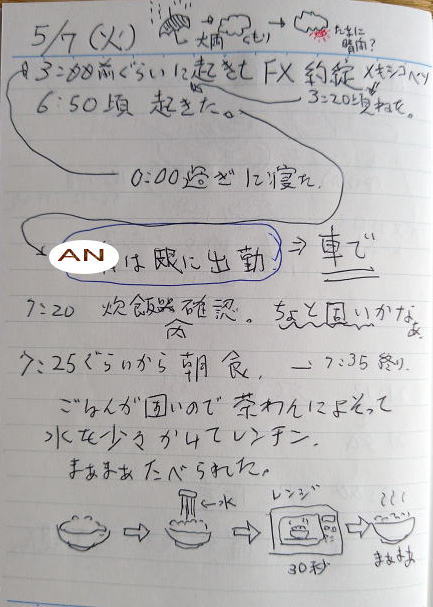 5/7 (火) 大雨 → くもり → たまに晴间?
3:00前ぐらいに起きて FX 約定 メキシコペソ
6:50頃 起きた。 3:20頃ねた。
0:00過ぎに寝た.
AN は既に出勤 ⇒ 車で
7:20 炊飯器内確認。ちょと固いかなぁ
7:25ぐらいから朝食. → 7:35 終り.
ごはんが固いので茶わんによそって
水を少々かけてレンチン.
まぁまぁたべられた。
←水 レンジ
30秒 まぁまぁ